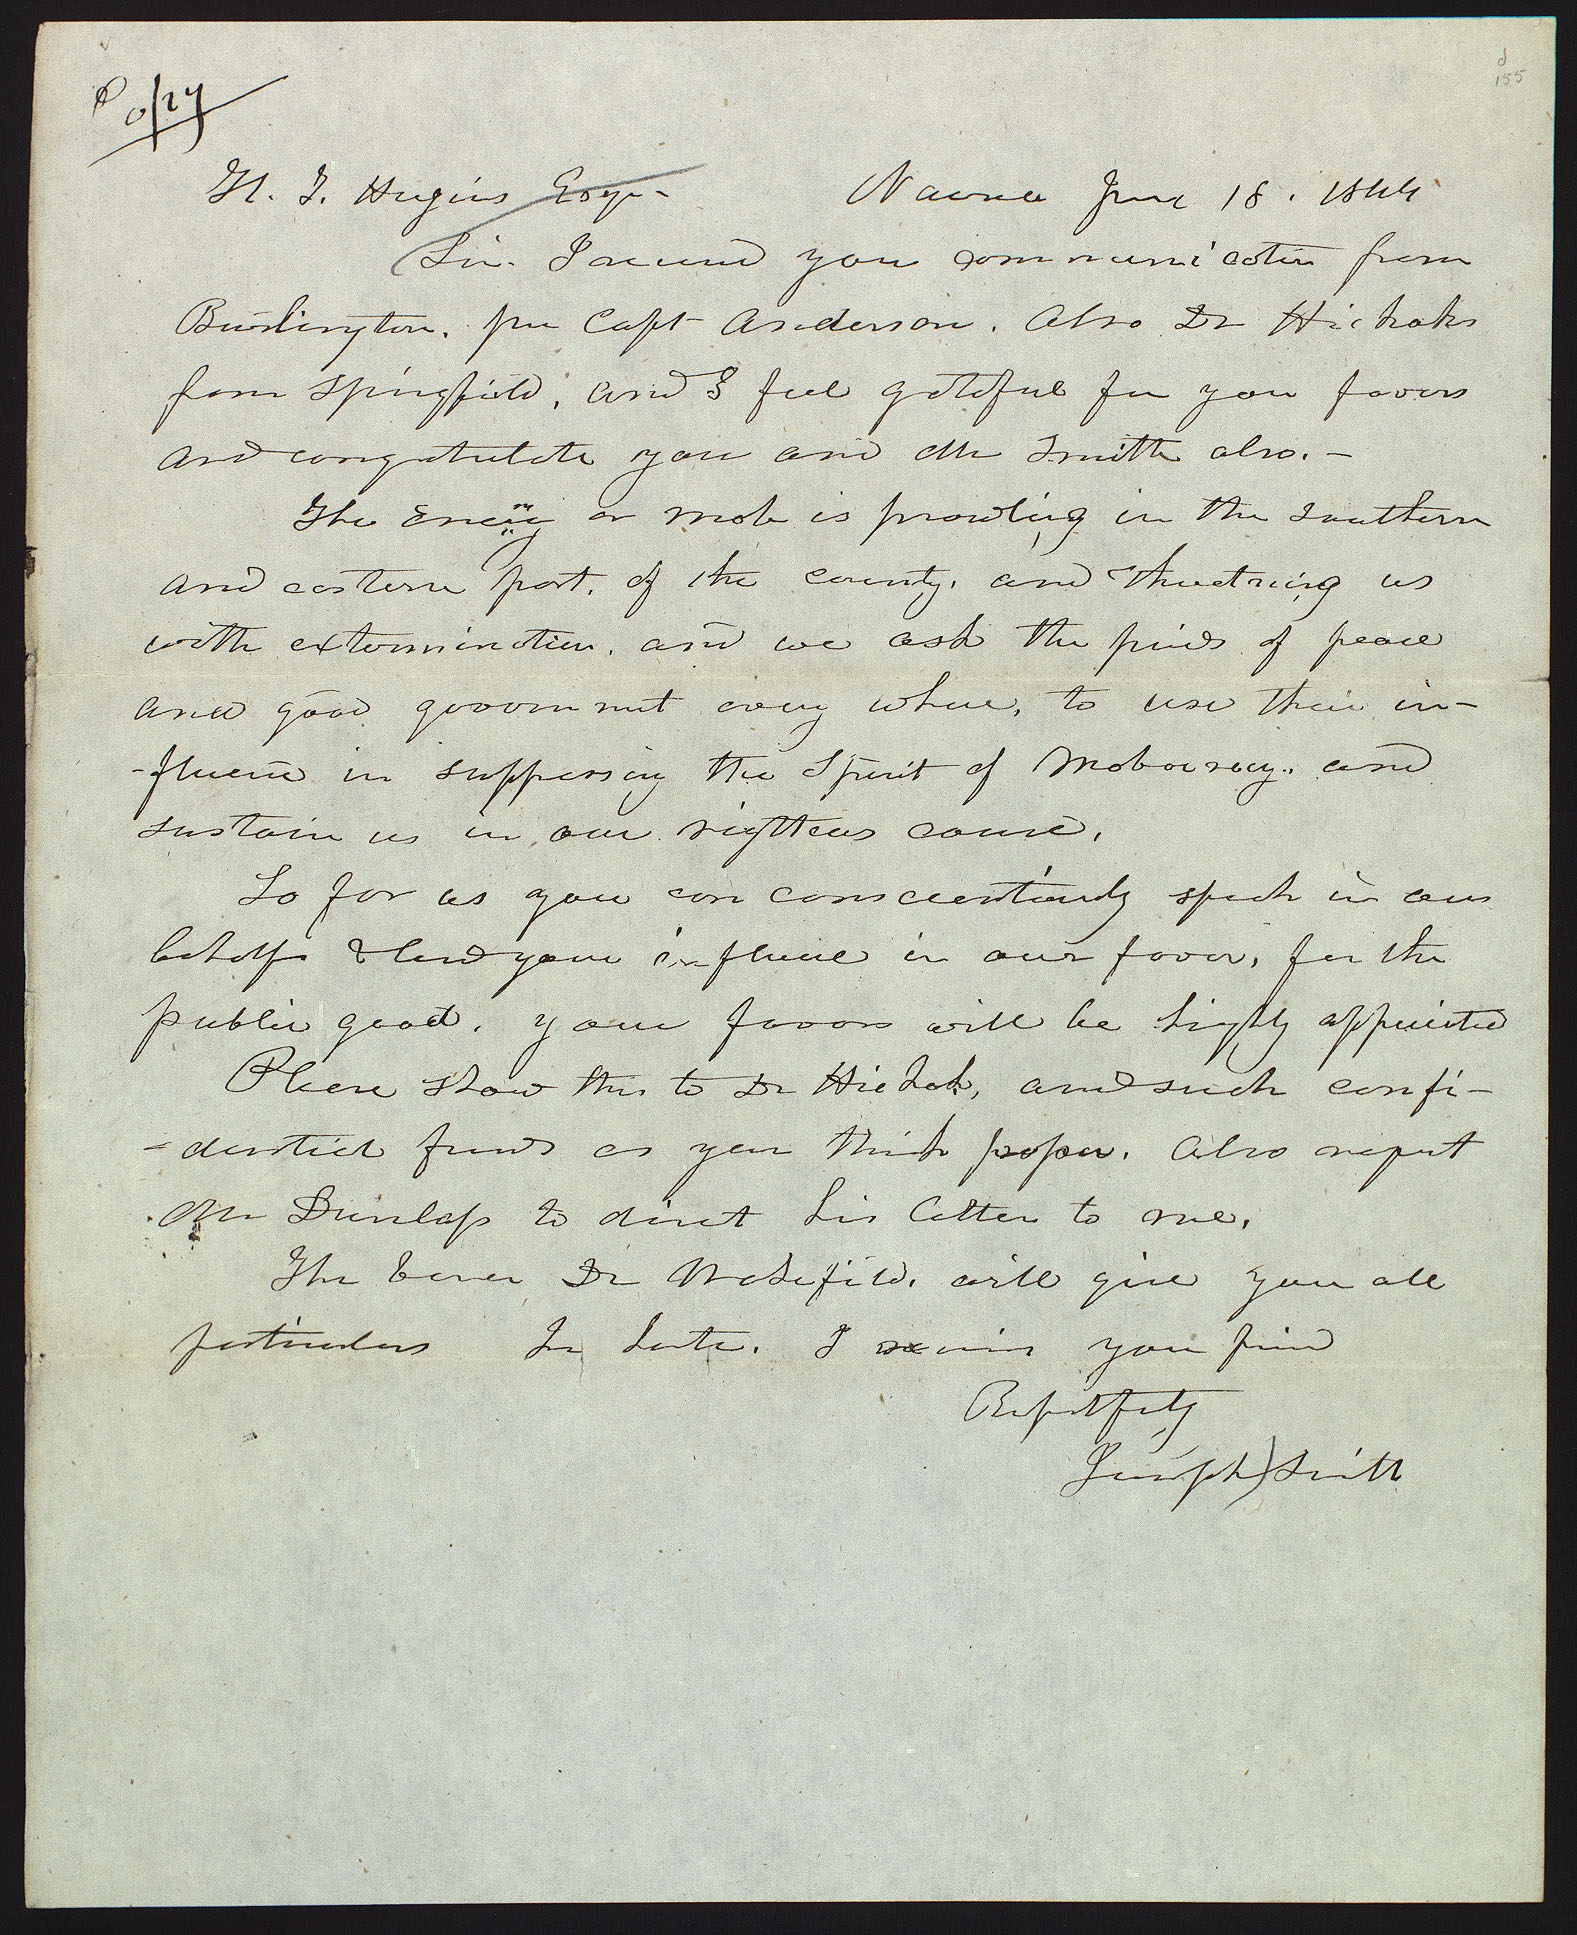 Copy
155
H. T. Hugins Esqr- Nauvoo June 18. 1844
Sir. I received your communication from
Burlington. per Capt Anderson. Also Dr Hickoks
from Springfield, and I feel grateful for your favors
and congratulate you and Mr Smith also.-
The Enemy or mob is prowling in the southern
and eastern part. of the county. and threatning us
with extermination. and we ask the friends of peace
and good government every where, to use their in-
-fluence in suppressing the Spirit of Mobocracy. and
sustain us in our righteous course,
So far as you can conscientiously speak in our
behalf & lend your influence in our favor, for the
public good. your favors will be highly appreciated
Please show this to Dr Hickok, and such confi-
-dential friends as you think proper. Also request
Mr Dunlap to direct his letter to me.
The bearer Dr Wakefield. will give you all
particulars In haste. I remain your friend
Respectfully
Joseph Smith